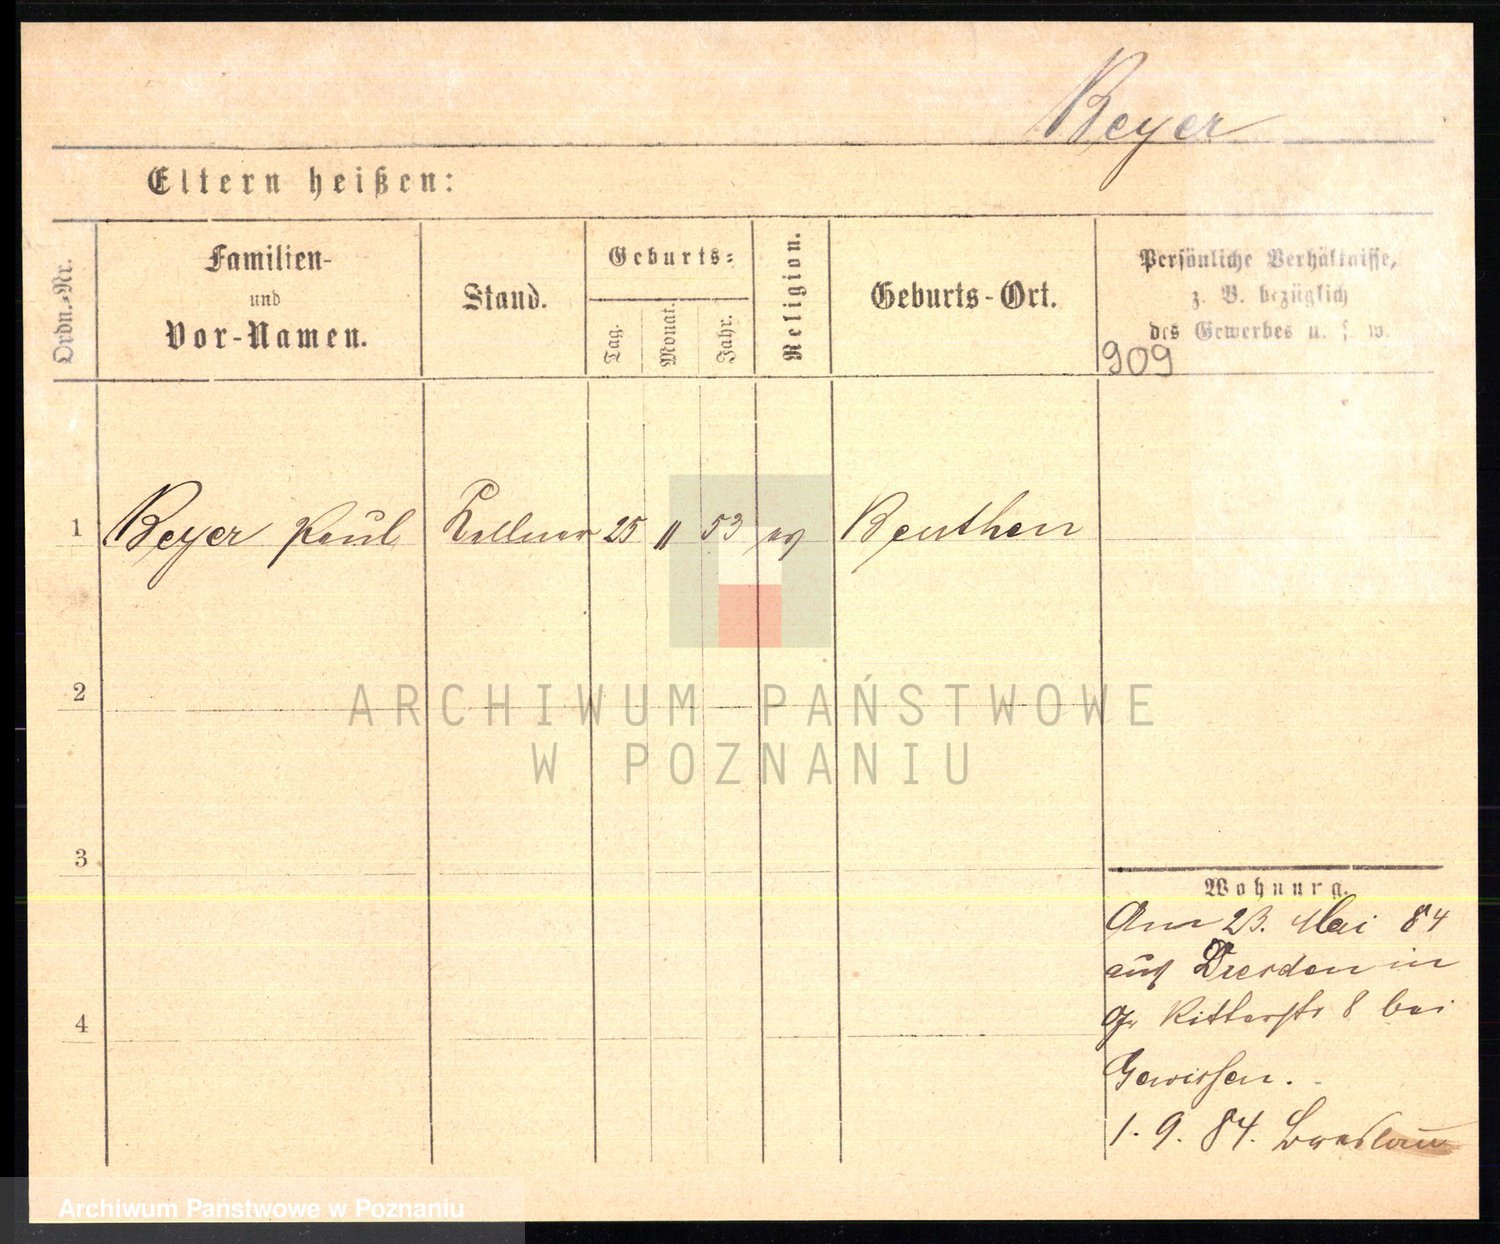 Beyer
Eltern heißen:
Ordn.-Nr.
Familien-
und
Vor-Namen.
Stand.
Geburts-
Tag.
Monat.
Jahr.
Religion.
Geburts-Ort.
Persönliche Verhältnisse,
z. B. bezüglich
des Gewerbes u. s. w.
909
1 Beyer Paul Kellner 25 11 53 ev Beuthen
2
3
4
Wohnung.
Am 23. Mai 84
aus Dresden in
Gr Ritterstr 8 bei
Gewissen.
1. 9. 84. Breslau
ARCHIWUM PAŃSTWOWE
W POZNANIU
Archiwum Państwowe w Poznaniu